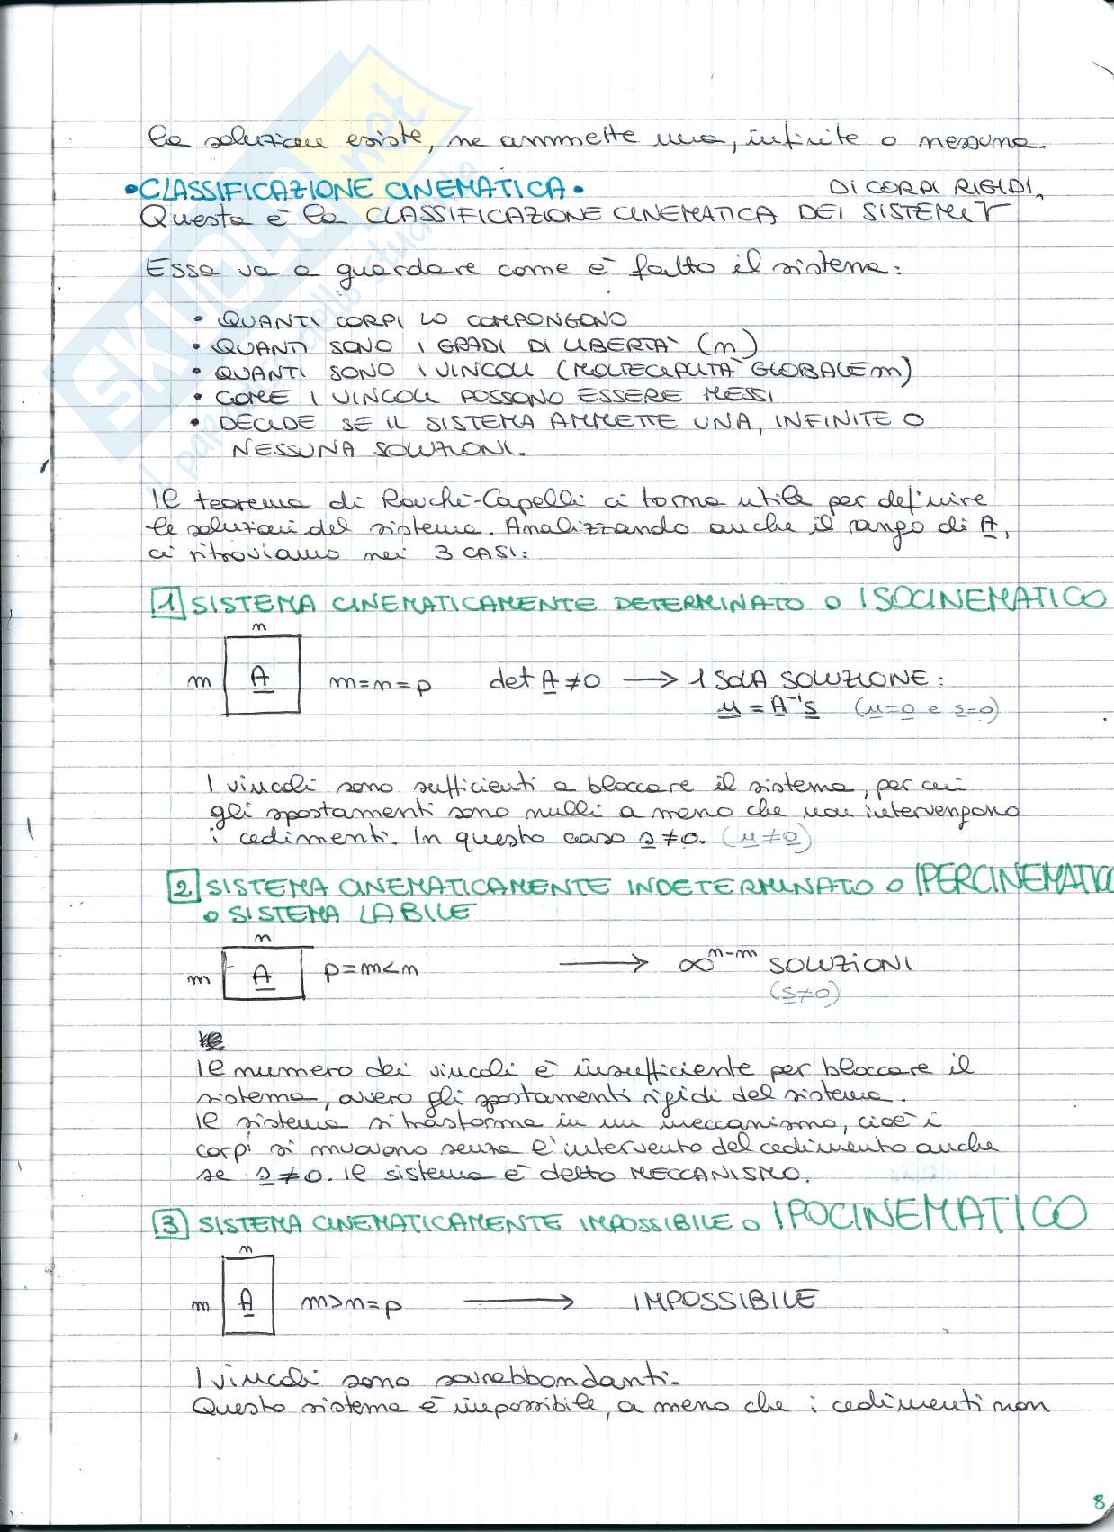 la soluzione esiste, ne ammette una, infinite o nessuna.
• CLASSIFICAZIONE CINEMATICA •
DI CORPI RIGIDI,
Questa è la CLASSIFICAZIONE CINEMATICA DEI SISTEMI
Essa va a guardare come è fatto il sistema:
• QUANTI CORPI LO COMPONGONO
• QUANTI SONO I GRADI DI LIBERTA' (n)
• QUANTI SONO I VINCOLI (MOLTEPLICITA' GLOBALE m)
• COME I VINCOLI POSSONO ESSERE MESSI
• DECIDE SE IL SISTEMA AMMETTE UNA, INFINITE O
NESSUNA SOLUZIONI.
Il teorema di Rouchè-Capelli ci torna utile per definire
le soluzioni del sistema. Analizzando anche il rango di A,
ci ritroviamo nei 3 CASI:
1 SISTEMA CINEMATICAMENTE DETERMINATO O ISOCINEMATICO
n
m A m=n=p det A ≠0 → 1 SOLA SOLUZIONE:
u = A⁻¹s (u=0 e s=0)
I vincoli sono sufficienti a bloccare il sistema, per cui
gli spostamenti sono nulli a meno che non intervengono
i cedimenti. In questo caso s≠0. (u≠0)
2 SISTEMA CINEMATICAMENTE INDETERMINATO O IPERCINEMATICO
O SISTEMA LABILE
n
m A p=m<n → ∞ⁿ⁻ᵐ SOLUZIONI
(s≠0)
Il numero dei vincoli è insufficiente per bloccare il
sistema, ovvero gli spostamenti rigidi del sistema.
Il sistema si trasforma in un meccanismo, cioè i
corpi si muovono senza l'intervento del cedimento anche
se s≠0. Il sistema è detto MECCANISMO.
3 SISTEMA CINEMATICAMENTE IMPOSSIBILE O IPOCINEMATICO
n
m A m>n=p → IMPOSSIBILE
I vincoli sono sovrabbondanti.
Questo sistema è impossibile, a meno che i cedimenti non
8
SKUOLA.net